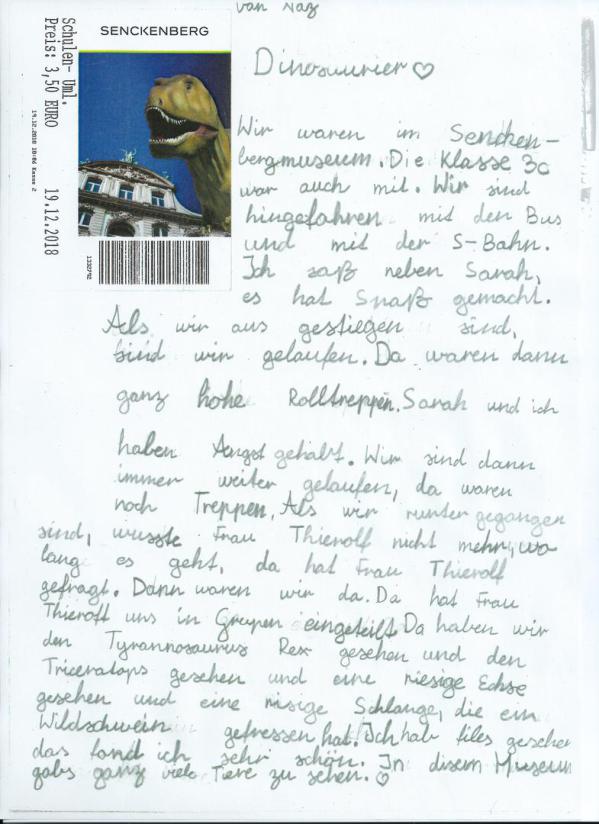 van Naz
SENCKENBERG
Schulen- Uml.
Preis: 3,50 EURO 19.12.2018
19.12.2018 10:06 Kasse 2
1332792
Dinosaurier♡
Wir waren im Sencken-
bergmuseum. Die Klasse 3c
war auch mit. Wir sind
hingefahren mit den Bus
und mit der S-Bahn.
Ich saß neben Sarah,
es hat Spaß gemacht.
Als wir aus gestiegen sind,
sind wir gelaufen. Da waren dann
ganz hohe Rolltreppen. Sarah und ich
haben Angst gehabt. Wir sind dann
immer weiter gelaufen, da waren
noch Treppen. Als wir runter gegangen
sind, wusste Frau Thierolf nicht mehr, wo
lang es geht, da hat Frau Thierolf
gefragt. Dann waren wir da. Da hat Frau
Thierolf uns in Grupen eingeteilt. Da haben wir
den Tyrannosaurus Rex gesehen und den
Triceratops gesehen und eine riesige Echse
gesehen und eine risige Schlange, die ein
Wildschwein gefressen hat. Ich hab files gesehen
das fand ich sehr schön. In disem Museum
gabs ganz viele Tiere zu sehen.♡